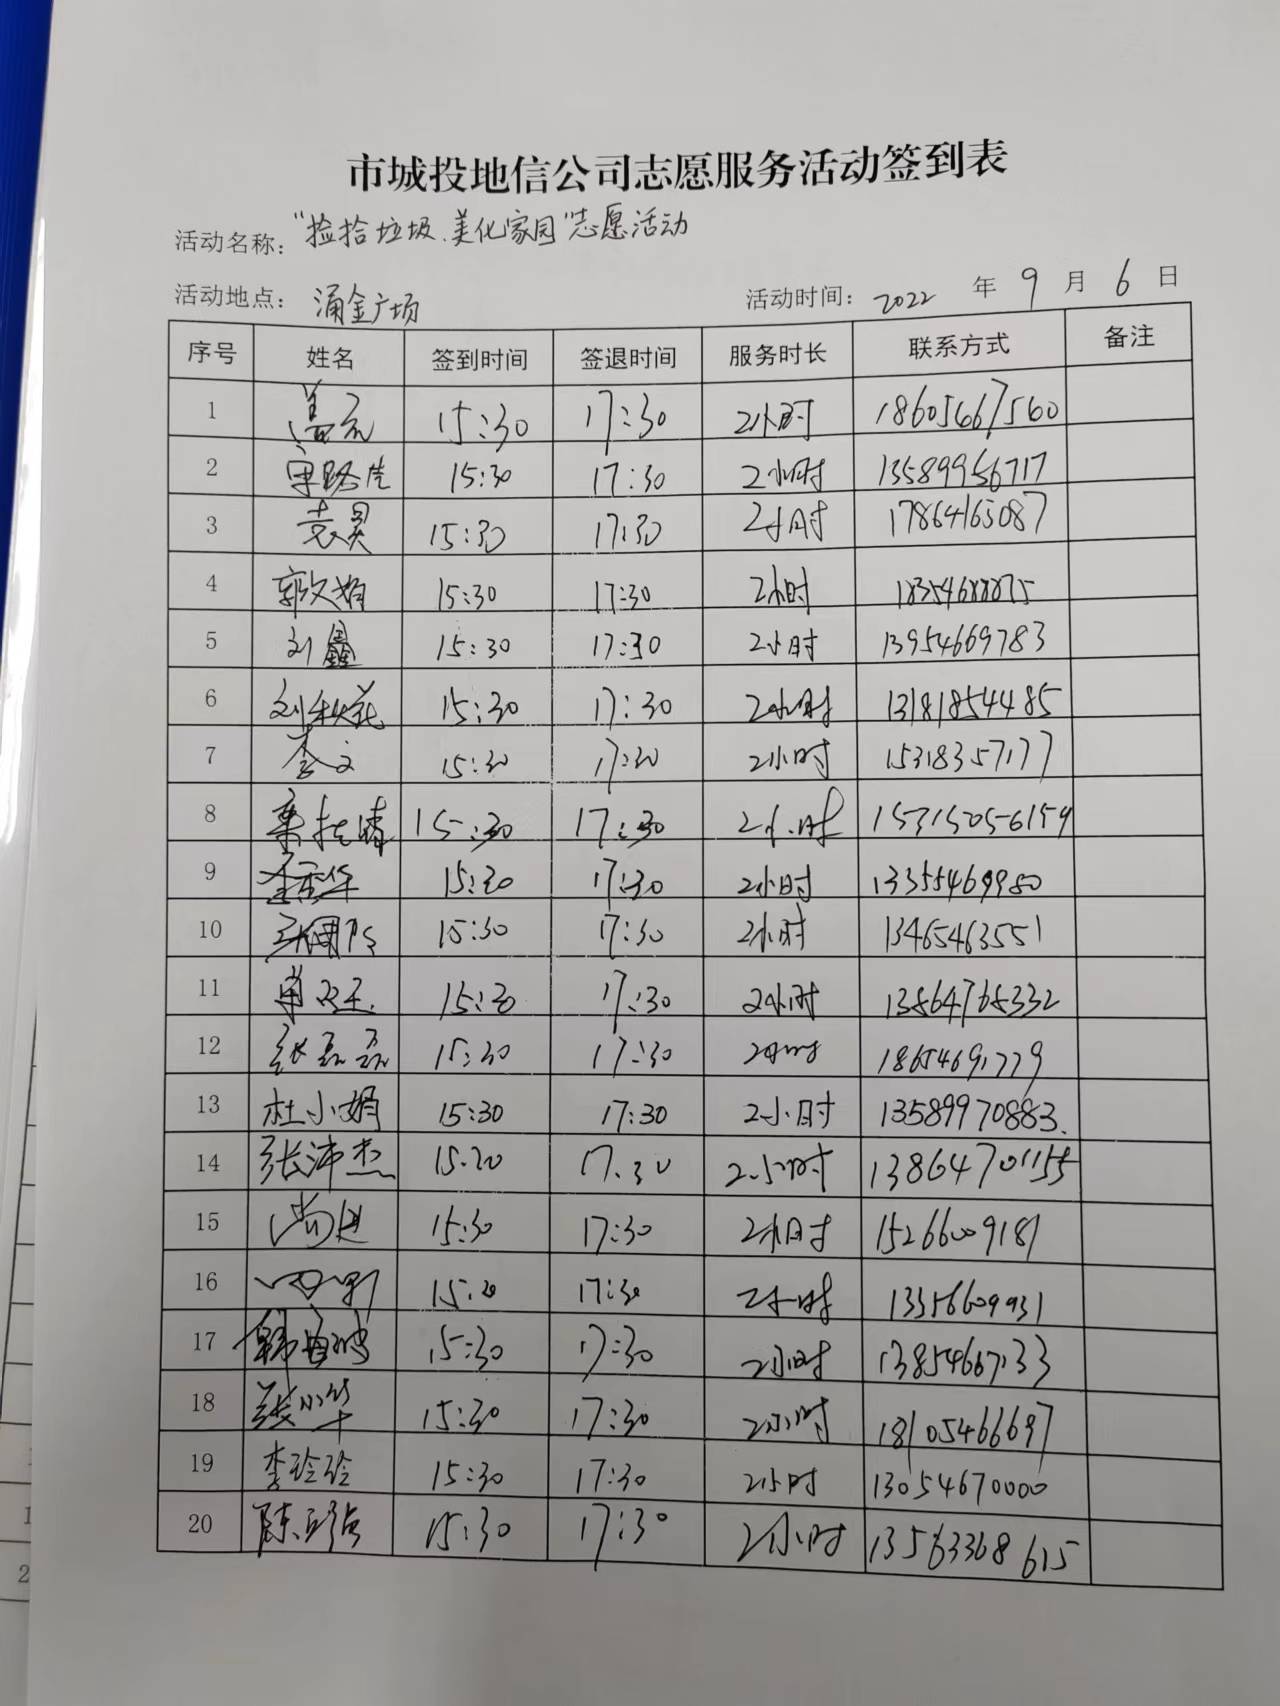 市城投地信公司志愿服务活动签到表
活动名称："捡拾垃圾、美化家园"志愿活动
活动地点：涌金广场 活动时间：2022 年 9 月 6 日
序号 姓名 签到时间 签退时间 服务时长 联系方式 备注
1 盖元 15:30 17:30 2小时 18605667560
2 15:30 17:30 2小时 13589956717
3 袁昊 15:30 17:30 2小时 17864165087
4 郭文娟 15:30 17:30 2小时 18354688875
5 刘鑫 15:30 17:30 2小时 13954669783
6 刘秋花 15:30 17:30 2小时 13181854485
7 李文 15:30 17:30 2小时 15318357177
8 15:30 17:30 2小时
9 15:30 17:30 2小时 13355469980
10 15:30 17:30 2小时 13465463551
11 15:30 17:30 2小时 13864768332
12 张磊磊 15:30 17:30 2小时 18654691779
13 杜小娟 15:30 17:30 2小时 13589970883.
14 张沛杰 15:30 17:30 2小时 13864701155
15 尚进 15:30 17:30 2小时 15266009181
16 15:30 17:30 2小时 13356609931
17 15:30 17:30 2小时 13854667133
18 张小华 15:30 17:30 2小时 18105466697
19 李玲玲 15:30 17:30 2小时 13054670000
20 15:30 17:30 2小时 13563368615